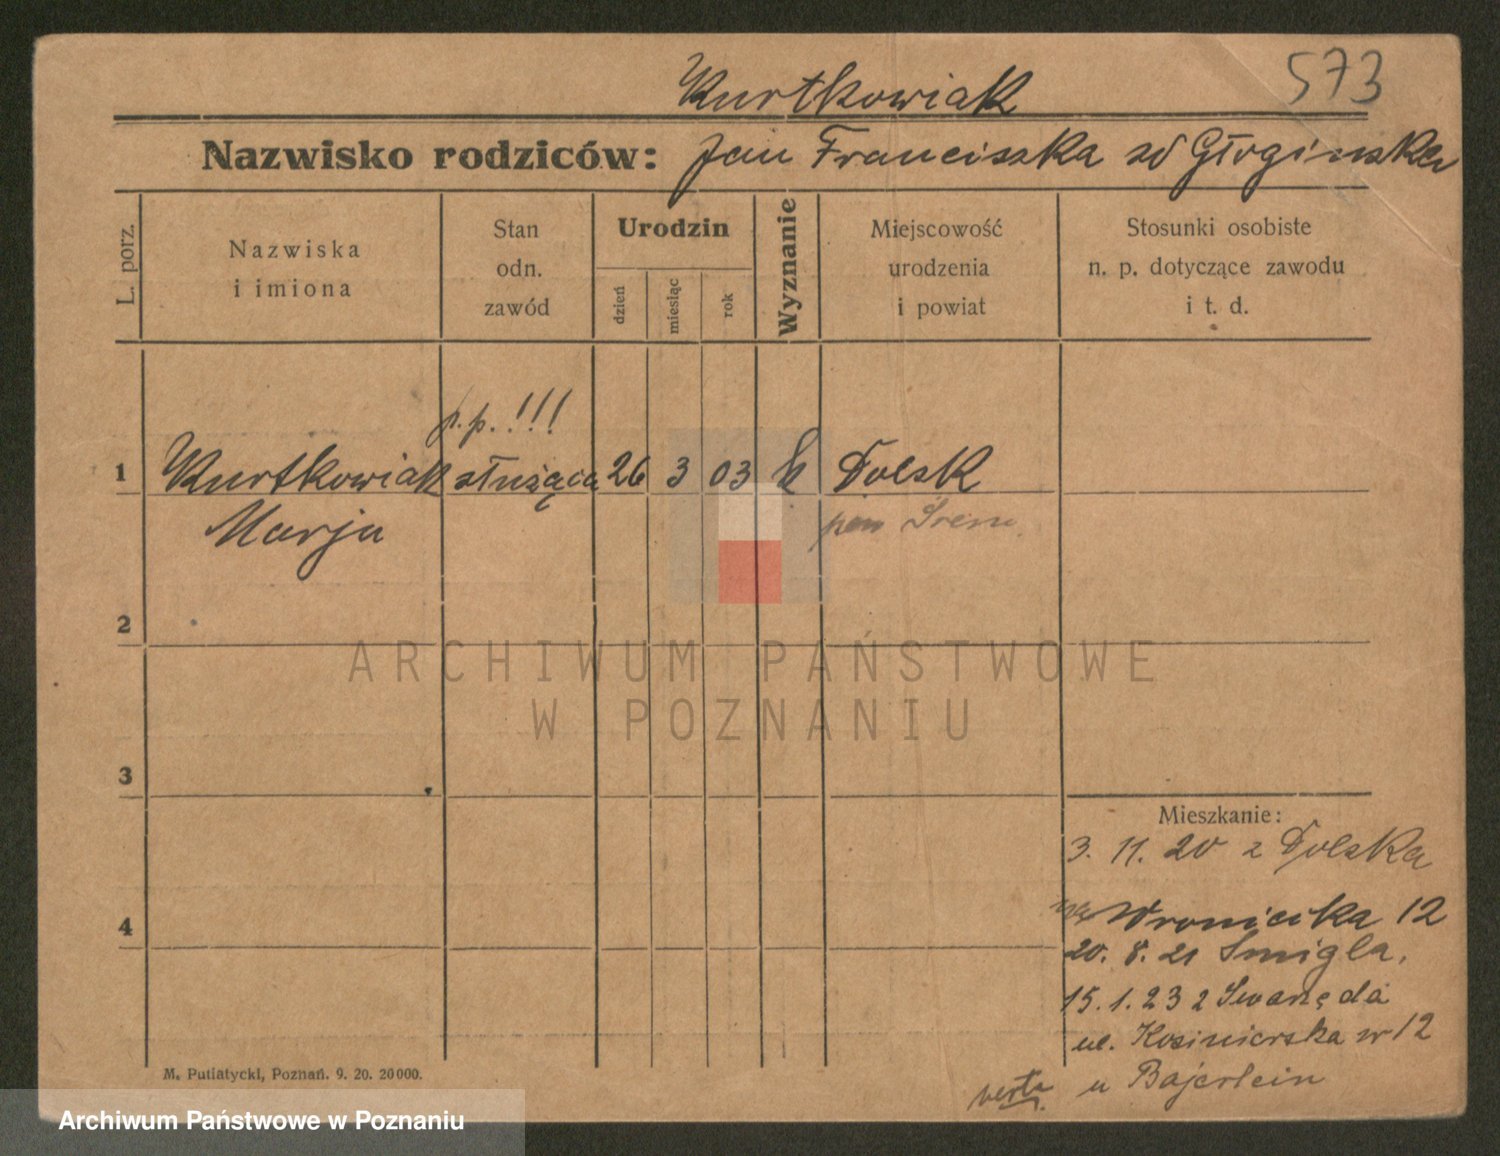 573
Kurtkowiak
Nazwisko rodziców: Jan Franciszka zd Głogińska
L. porz.
Nazwiska
i imiona
Stan
odn.
zawód
Urodzin
dzień
miesiąc
rok
Wyznanie
Miejscowość
urodzenia
i powiat
Stosunki osobiste
n. p. dotyczące zawodu
i t. d.
p.p.!!!
1 Kurtkowiak służąca 26 3 03 k Dolsk
Marja pow Śrem
2
ARCHIWUM PAŃSTWOWE
W POZNANIU
3
Mieszkanie:
3. 11. 20 z Dolska
4 Wroniecka 12
20. 8. 21 Śmigla,
15. 1. 23 z Swarzęda
ul. Kosinierska nr 12
M. Putiatycki, Poznań. 9. 20. 20000.
u Bajerlein
verte
Archiwum Państwowe w Poznaniu